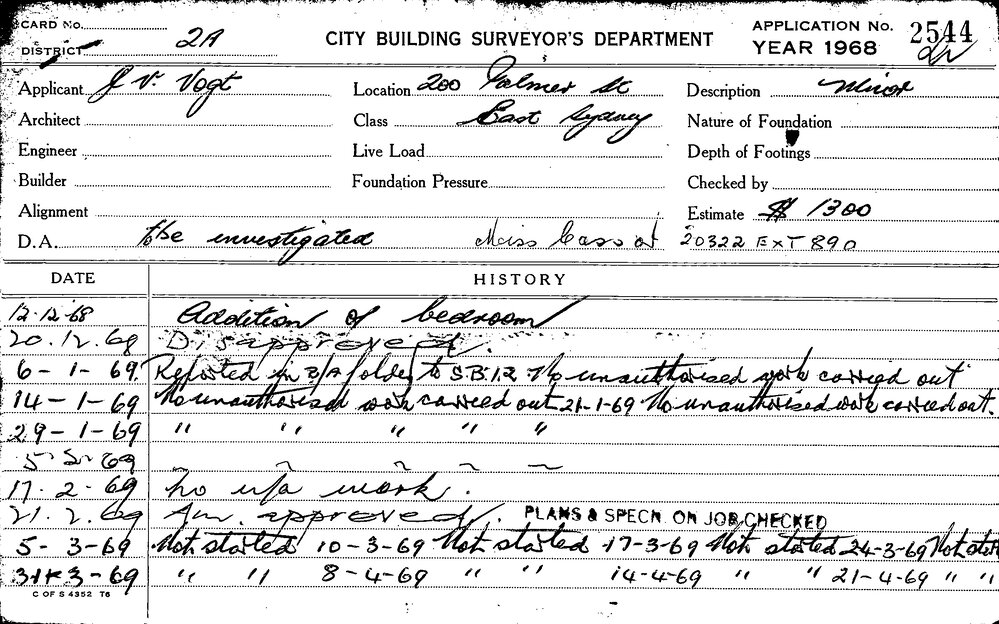 CARD No. APPLICATION No. 2544
DISTRICT 2A CITY BUILDING SURVEYOR'S DEPARTMENT YEAR 1968
Applicant J V. Vogt Location 200 Palmer St Description Minor
Architect Class East Sydney Nature of Foundation
Engineer Live Load Depth of Footings
Builder Foundation Pressure Checked by
Alignment Estimate $ 1300
D.A. to be investigated Miss at 20322 EXT 890
DATE HISTORY
12.12.68 Addition of bedroom
20.12.68 Disapproved.
6-1-69. Reported in B/A folder to S.B.I.2 No unauthorised work carried out
14-1-69 No unauthorised work carried out 21-1-69 No unauthorised work carried out.
29-1-69 " " " " "
5-2-69 ~ ~ ~ ~
17.2.69 no u/a work.
21.2.69 Am. approved. PLANS & SPECN. ON JOB CHECKED
5-3-69 Not started 10-3-69 Not started 17-3-69 Not started 24-3-69 Not start
31-3-69 " " 8-4-69 " " 14-4-69 " " 21-4-69 " "
C OF S 4352 T6